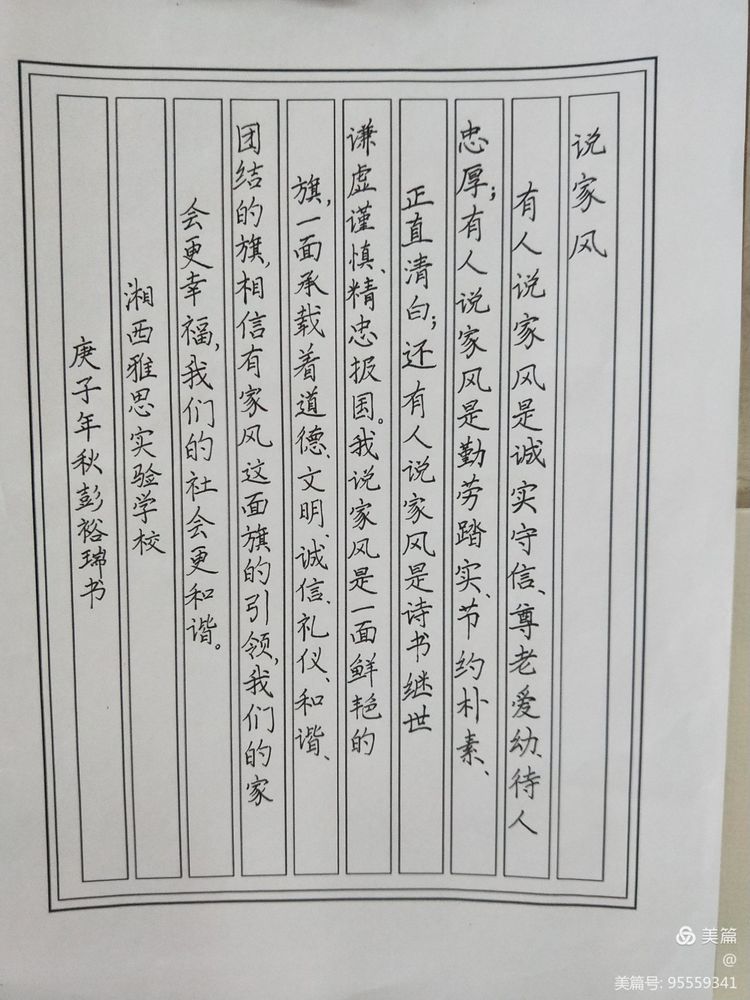 说家风
有人说家风是诚实守信、尊老爱幼、待人
忠厚；有人说家风是勤劳踏实、节约朴素、
正直清白；还有人说家风是诗书继世
谦虚谨慎、精忠报国。我说家风是一面鲜艳的
旗，一面承载着道德、文明、诚信、礼仪、和谐、
团结的旗，相信有家风这面旗的引领，我们的家
会更幸福，我们的社会更和谐。
湘西雅思实验学校
庚子年秋彭裕瑞书
美篇
@
美篇号: 95559341